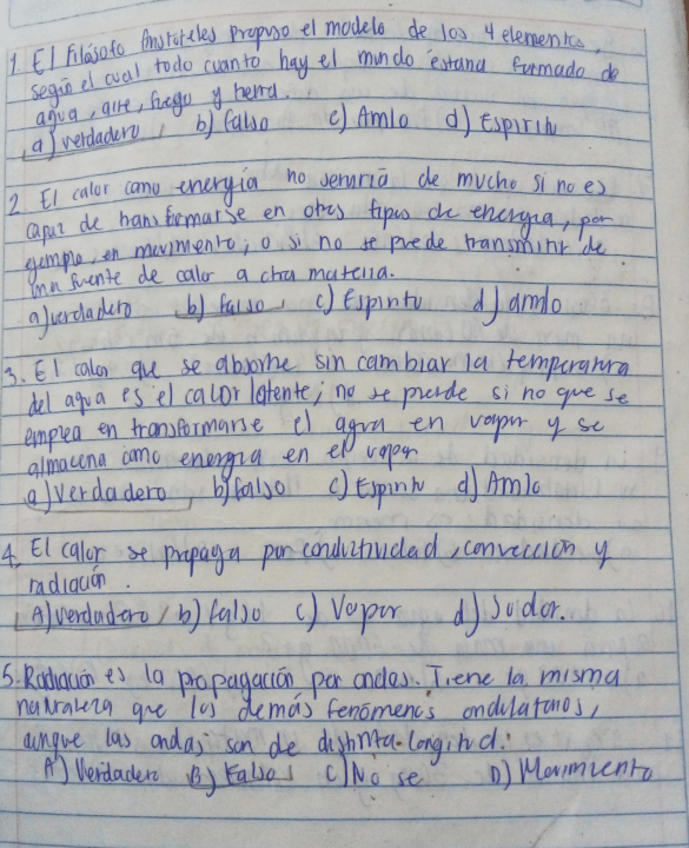 1. El Filósofo Aristoteles propuso el modelo de los 4 elementos,
según el cual todo cuanto hay el mundo estaria formado de
agua, aire, fuego y tierra.
a) verdadero b) falso c) Amlo d) Espiritu
2. El calor como energía no serviria de mucho si no es
capaz de transformarse en otros tipos de energia, por
ejemplo, en movimento; o si no se puede transmitir de
una fuente de calor a otra materia.
a) verdadero b) falso c) Espiritu d) amlo
3. El calor que se absorbe sin cambiar la temperatura
del agua es el calor latente; no se pierde si no que se
emplea en transformarse el agua en vapor y se
almacena como energia en el vapor
a) verdadero b) falso c) Espiritu d) Amlo
4. El calor se propaga por conductividad, convección y
radiación.
A) verdadero b) falso c) Vapor d) Sudor.
5. Radiación es la propagación por ondas. Tiene la misma
naturaleza que los demás fenómenos ondulatorios,
aunque las ondas son de distinta longitud.
A) Verdadero B) Falso C) No se D) Movimiento